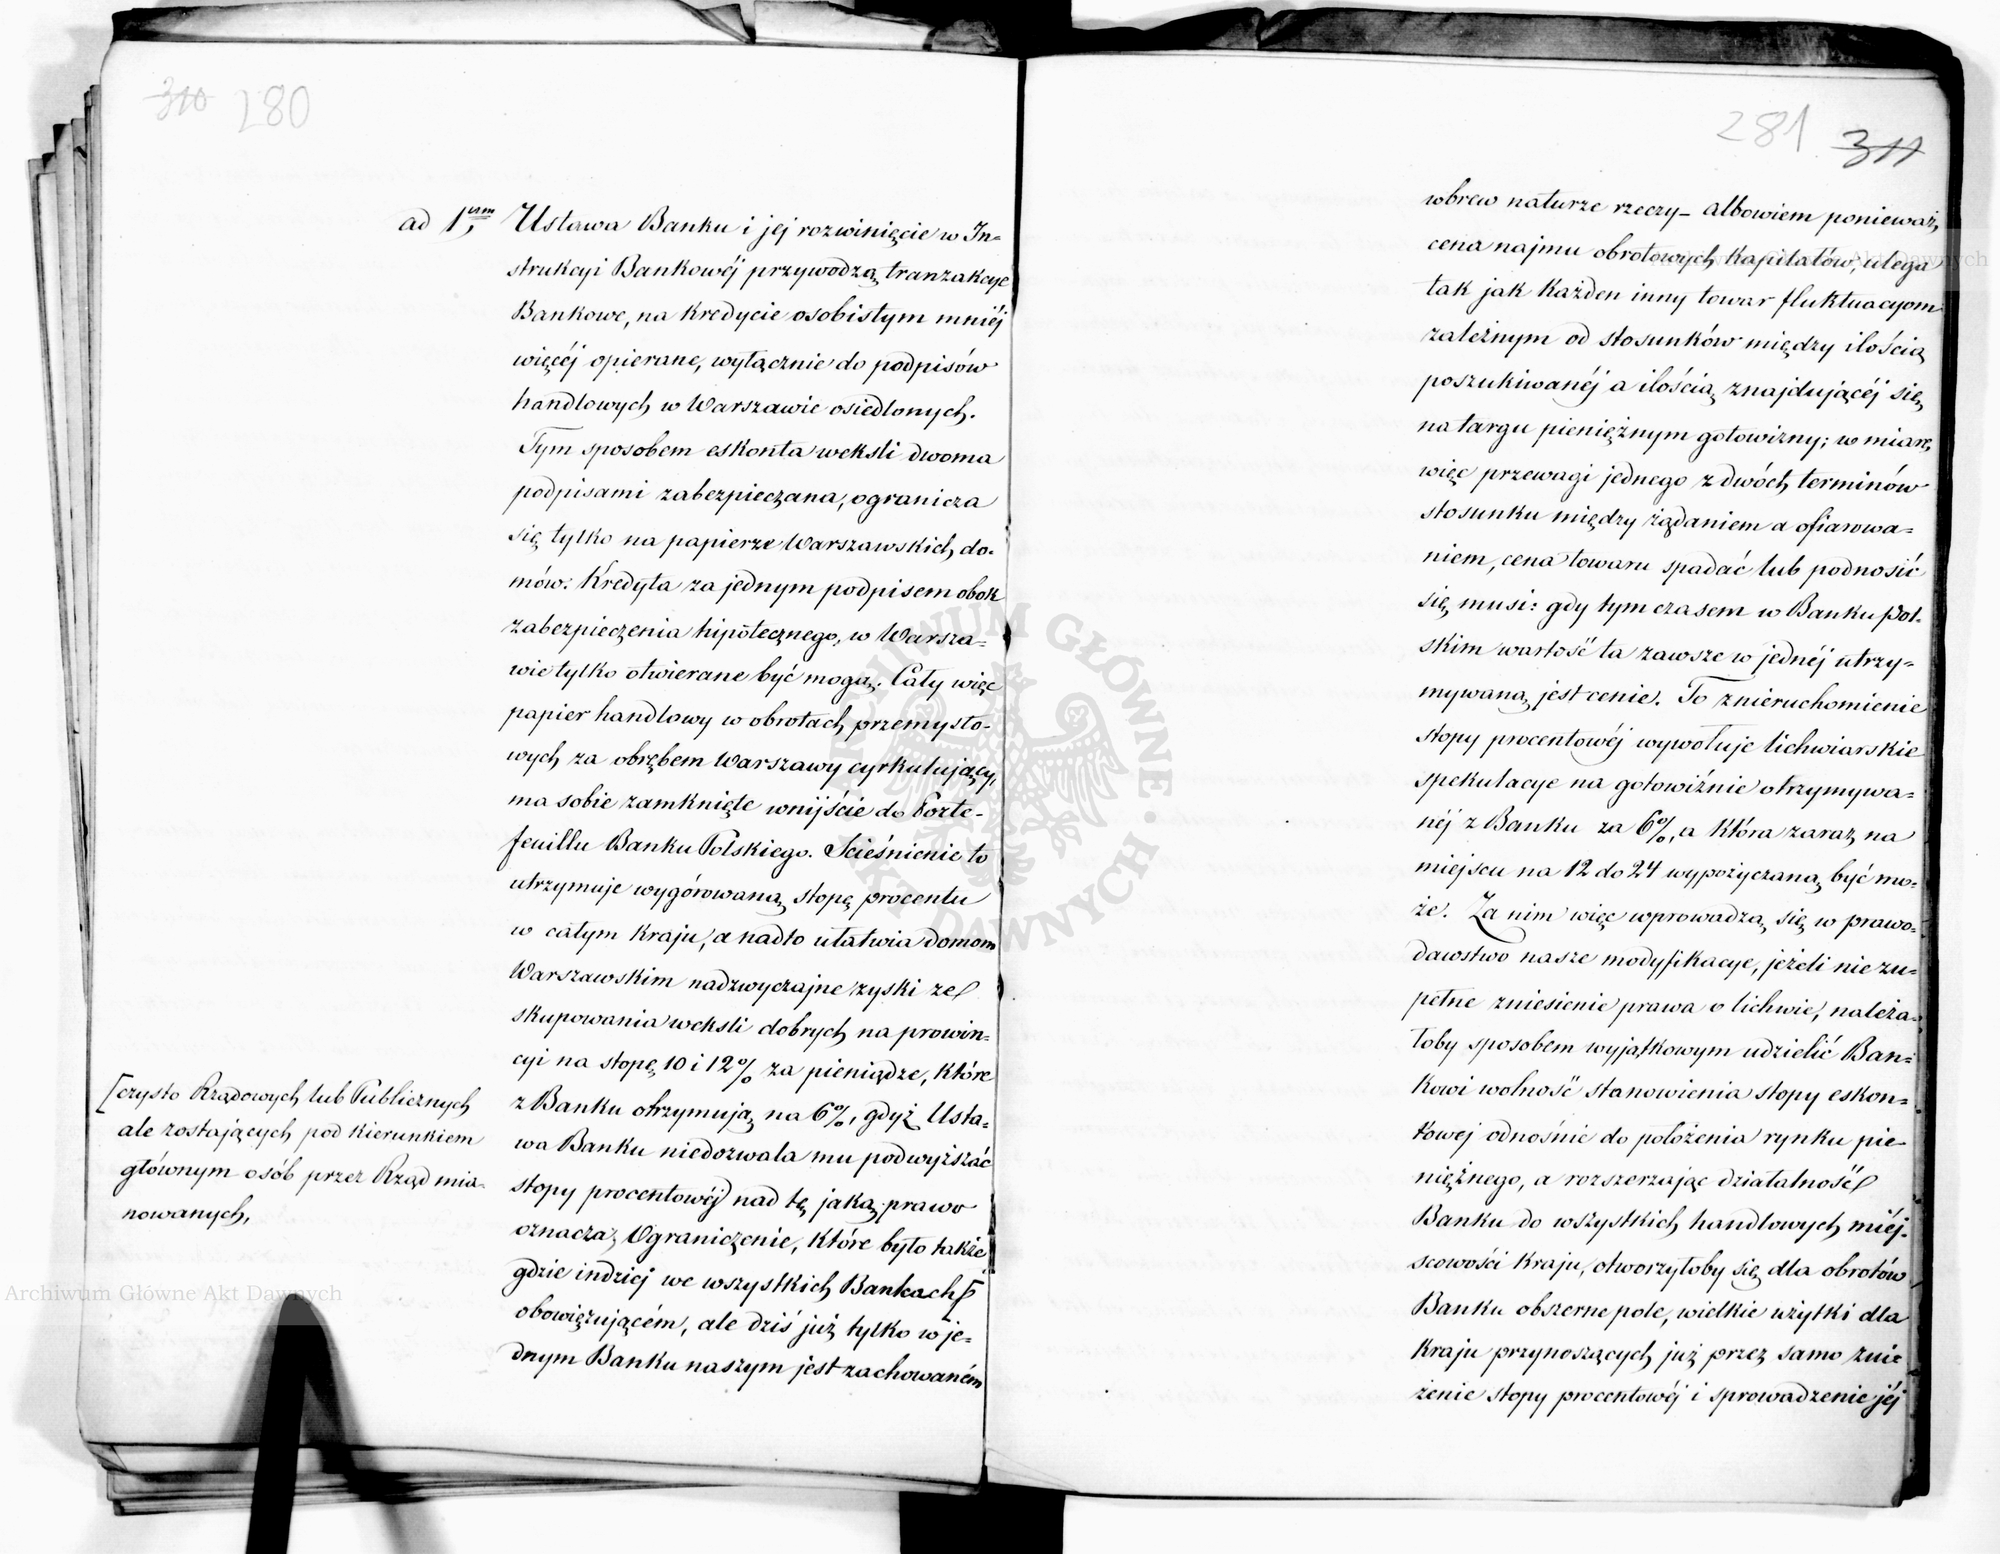 310 280
ad 1um Ustawa Banku i jej rozwinięcie w In-
strukcyi Bankowéj przywodzą tranzakcye
Bankowe, na kredycie osobistym mniéj
więcéj opierane, wyłącznie do podpisów
handlowych w Warszawie osiedlonych.
Tym sposobem eskonta weksli dwoma
podpisami zabezpieczana, ogranicza
się tylko na papierze Warszawskich do-
mów. Kredyta za jednym podpisem obok
zabezpieczenia hipotecznego, w Warsza-
wie tylko otwierane być mogą. Cały więc
papier handlowy w obrotach przemysło-
wych za obrębem Warszawy cyrkulujący,
ma sobie zamknięte wnijście do Porte-
feuillu Banku Polskiego. Scieśnienie to
utrzymuje wygórowaną stopę procentu
w całym kraju, a nadto ułatwia domom
Warszawskim nadzwyczajne zyski ze
skupowania weksli dobrych na prowin-
cyi na stopę 10 i 12% za pieniądze, które
z Banku otrzymują na 6%, gdyż Usta-
wa Banku niedozwala mu podwyższać
stopy procentowéj nad tę jaką prawo
oznacza, Ograniczenie, które było także
gdzie indziej we wszystkich Bankach [
obowięzującém, ale dziś już tylko w je-
dnym Banku naszym jest zachowaném
[czysto Rządowych lub Publicznych
ale zostających pod kierunkiem
głównym osób przez Rząd mia-
nowanych,
281 311
wbrew naturze rzeczy – albowiem ponieważ,
cena najmu obrotowych kapitałów, ulega
tak jak każden inny towar fluktuacyom
zależnym od stosunków między ilością
poszukiwanéj a ilością znajdującéj się
na targu pieniężnym gotowizny; w miarę
więc przewagi jednego z dwóch terminów
stosunku między żądaniem a ofiarowa-
niem, cena towaru spadać lub podnosić
się musi: gdy tym czasem w Banku Pol-
skim wartość ta zawsze w jednéj utrzy-
mywaną jest cenie. To znieruchomienie
stopy procentowéj wywołuje lichwiarskie
spekulacye na gotowiźnie otrzymywa-
néj z Banku za 6%, a która zaraz na
miejscu na 12 do 24 wypożyczaną być mo-
że. Za nim więc wprowadzą się w prawo-
dawstwo nasze modyfikacye, jeżeli nie zu-
pełne zniesienie prawa o lichwie, należa-
łoby sposobem wyjątkowym udzielić Ban-
kowi wolność stanowienia stopy eskon-
towej odnośnie do położenia rynku pie-
niężnego, a rozszerzając działalność
Banku do wszystkich handlowych miéj-
scowości kraju, otworzyłoby się dla obrotów
Banku obszerne pole, wielkie użytki dla
kraju przynoszących już przez samo zni-
żenie stopy procentowéj i sprowadzenie jéj
ARCHIWUM GŁÓWNE AKT DAWNYCH
Archiwum Główne Akt Dawnych